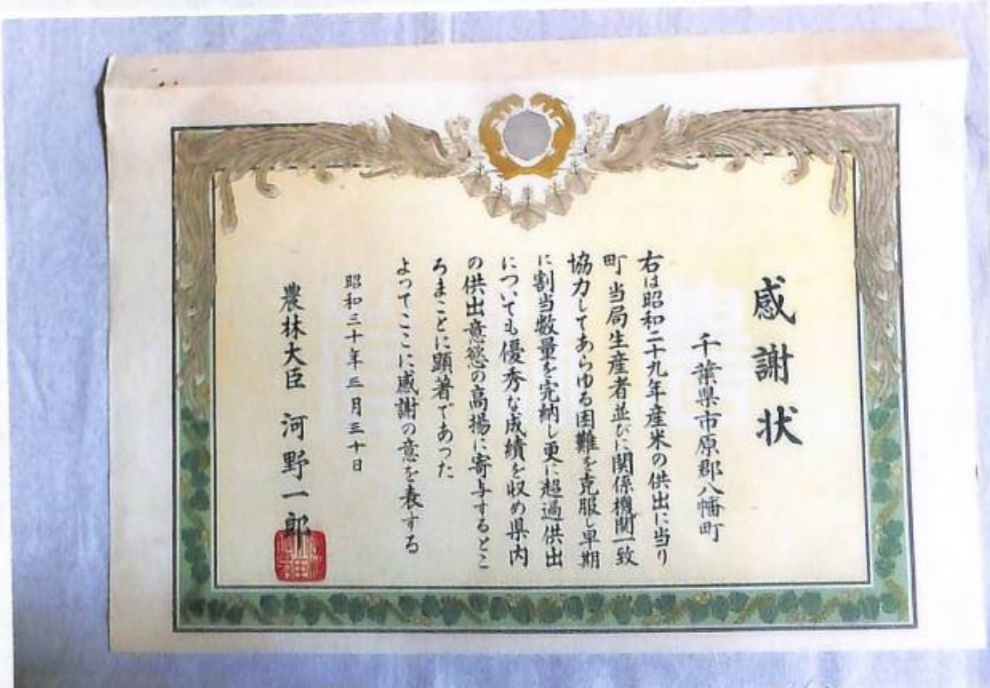 感謝状
千葉県市原郡八幡町
右は昭和二十九年産米の供出に当り
町当局生産者並びに関係機関一致
協力してあらゆる困難を克服し早期
に割当数量を完納し更に超過供出
についても優秀な成績を収め県内
の供出意慾の高揚に寄与するとこ
ろまことに顕著であった
よってここに感謝の意を表する
昭和三十年三月三十日
農林大臣 河野一郎